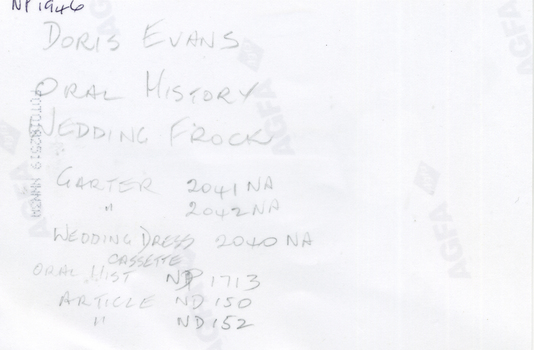 NP1946
DORIS EVANS
ORAL HISTORY
WEDDING FROCK
GARTER 2041 NA
" 2042 NA
WEDDING DRESS 2040 NA
CASSETTE
ORAL HIST NP 1713
ARTICLE ND 150
" ND 152
AGFA
AGFA
AGFA
AGFA
AGFA